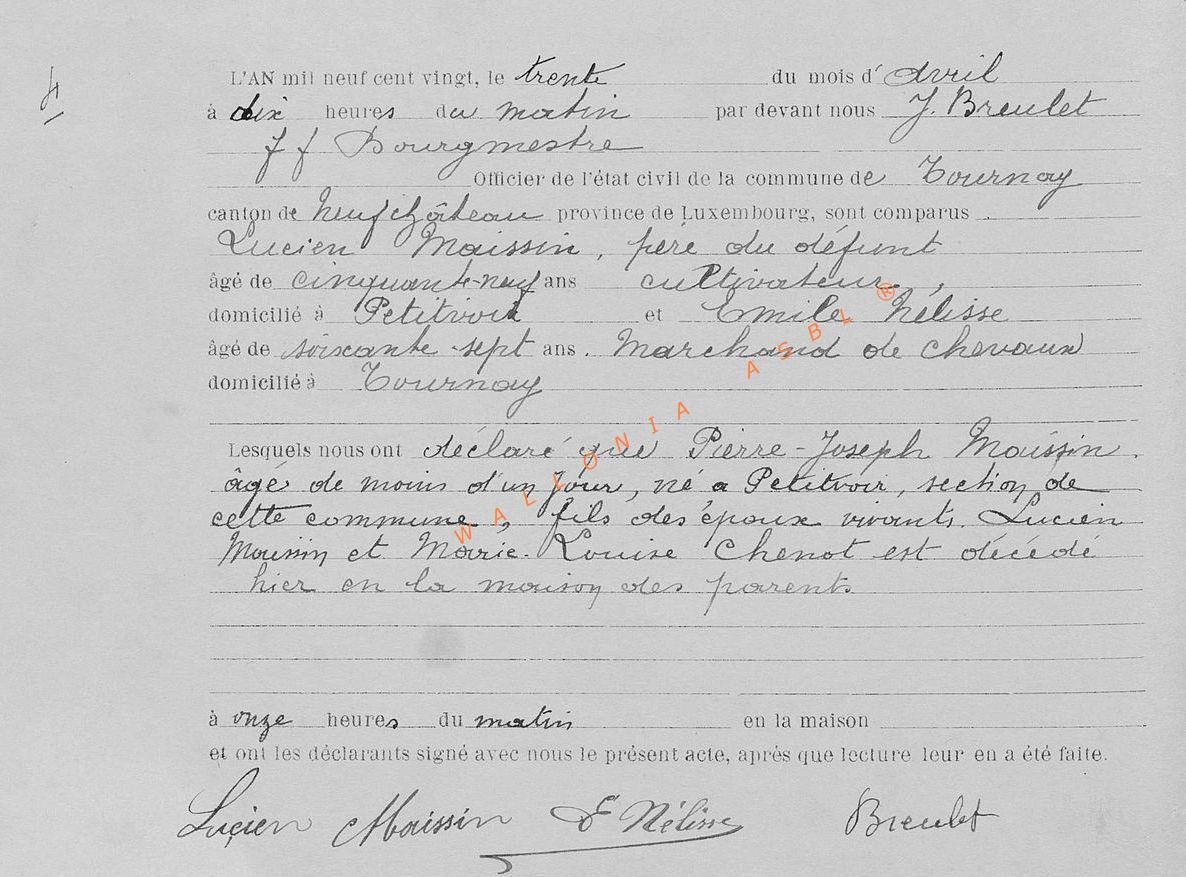 4
L'AN mil neuf cent vingt, le trente du mois d'avril
à dix heures du matin par devant nous J. Breulet
ff Bourgmestre
Officier de l'état civil de la commune de Tournay
canton de Neufchâteau province de Luxembourg, sont comparus
Lucien Maissin, père du défunt
âgé de cinquante-neuf ans cultivateur,
domicilié à Petitvoir et Emile Nélisse
âgé de soixante-sept ans. Marchand de chevaux
domicilié à Tournay
Lesquels nous ont déclaré que Pierre-Joseph Maissin,
âgé de moins d'un jour, né à Petitvoir, section de
cette commune, fils des époux vivants. Lucien
Maissin et Marie-Louise Chenot est décédé
hier en la maison des parents
à onze heures du matin en la maison
et ont les déclarants signé avec nous le présent acte, après que lecture leur en a été faite.
Lucien Maissin E Nélisse Breulet
WALLONIA ASBL ®